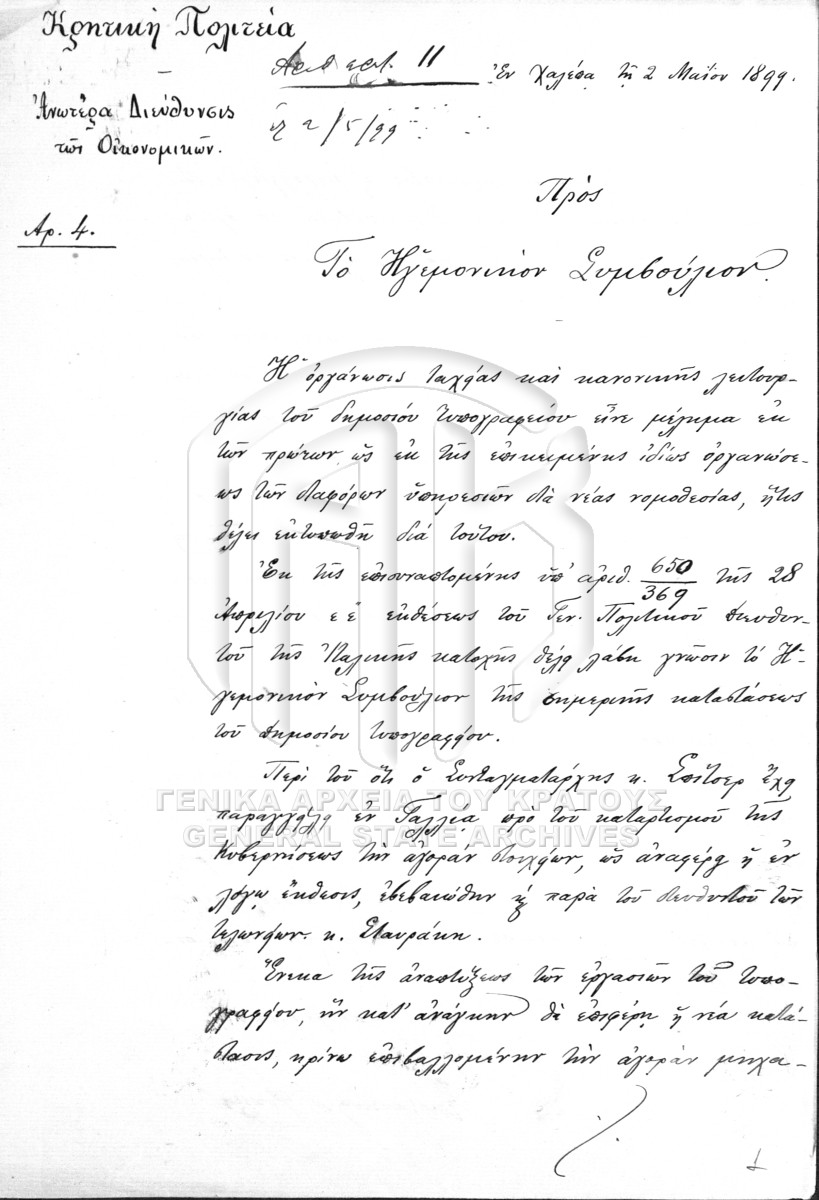 Κρητική Πολιτεία
Ἀριθ. πρωτ. 11
Ἐν Χαλέπᾳ τῇ 2 Μαΐου 1899.
Ἀνωτέρα Διεύθυνσις
τῶν Οἰκονομικῶν.
2/5/99
Ἀρ. 4.
Πρὸς
Τὸ Ἡγεμονικὸν Συμβούλιον.
Ἡ ὀργάνωσις ταχείας καὶ κανονικῆς λειτουρ-
γίας τοῦ δημοσίου τυπογραφείου εἶνε μέλημα ἐκ
τῶν πρώτων ὡς ἐκ τῆς ἐπικειμένης ἰδίως ὀργανώσε-
ως τῶν διαφόρων ὑπηρεσιῶν διὰ νέας νομοθεσίας, ἥτις
θέλει ἐκτυπωθῆ διὰ τούτου.
Ἐκ τῆς ἐπισυναπτομένης ὑπ' ἀριθ. 650/369 τῆς 28
Ἀπριλίου ἐ.ἔ. ἐκθέσεως τοῦ Γεν. Πολιτικοῦ Διευθυν-
τοῦ τῆς Ἰταλικῆς κατοχῆς θέλει λάβῃ γνῶσιν τὸ Ἡ-
γεμονικὸν Συμβούλιον τῆς σημερινῆς καταστάσεως
τοῦ δημοσίου τυπογραφείου.
Περὶ τοῦ ὅτι ὁ Συνταγματάρχης κ. Σπίτσερ ἔχει
παραγγείλῃ ἐν Γαλλίᾳ πρὸ τοῦ καταρτισμοῦ τῆς
ΓΕΝΙΚΑ ΑΡΧΕΙΑ ΤΟΥ ΚΡΑΤΟΥΣ
GENERAL STATE ARCHIVES
Κυβερνήσεως τὴν ἀγορὰν στοιχείων, ὡς ἀναφέρει ἡ ἐν
λόγῳ ἔκθεσις, ἐβεβαιώθην καὶ παρὰ τοῦ διευθυντοῦ τῶν
τελωνείων κ. Σταυράκη.
Ἕνεκα τῆς ἀναπτύξεως τῶν ἐργασιῶν τοῦ τυπο-
γραφείου, ἣν κατ' ἀνάγκην θὰ ἐπιφέρῃ ἡ νέα κατά-
στασις, κρίνω ἐπιβαλλομένην τὴν ἀγορὰν μηχα-
./.